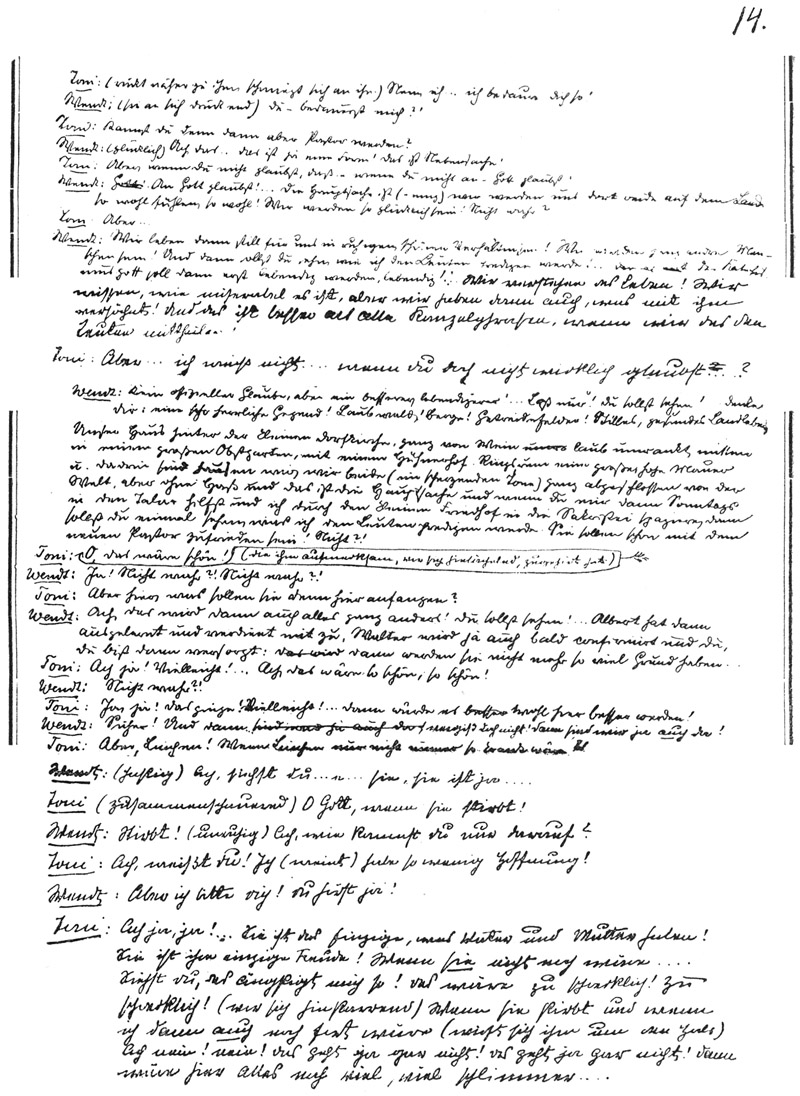 14.
Toni: (rückt näher zu ihm schmiegt sich an ihn.) Nein ich .. ich bedaure dich so!
Wendt: (sie an sich drückend) du - bedauerst mich?!
Toni: Kannst du denn dann aber Pastor werden?
Wendt: (glücklich) Ach das .. das ist ja eine Form! das ist Nebensache!
Toni: Aber, wenn du nicht glaubst, daß - wenn du nicht an - Gott glaubst!
Wendt: An Gott glaubst! ... Die Hauptsache ist (-innig) wir werden uns dort beide auf dem Lande
so wohl fühlen, so wohl! Wir werden so glücklich sein! Nicht wahr?
Toni: Aber ...
Wendt: Wir leben dann still für uns in ruhigen schönen Verhältnissen! Wir werden ganz andre Men-
schen sein! Und dann sollst du sehn wie ich den Leuten predigen werde! ...
muss Gott soll dann erst lebendig werden, lebendig! .. Wir verstehen das Leben! Wir
wissen, wie miserabel es ist, aber wir haben dann auch, was mit ihm
versöhnt! Und das ist besser als alle Kanzelphrasen, wenn wir das den
Leuten mittheilen!
Toni: Aber ... ich weiß nicht .... wenn du doch nicht wirklich glaubst .... ?
Wendt: Kein offizieller Glaube, aber ein besserer lebendigerer! ... Laß nur! du sollst sehen! denke
dir: eine sehr herrliche Gegend! Laubwald! Berge! Getreidefelder! Stilles, gesundes Landleben
Unser Haus hinter der kleinen Dorfkirche, ganz von Weinlaub umrankt, mitten
in einem großen Obstgarten, mit einem Hühnerhof. Ringsum eine große, hohe Mauer
u. dadrin wir beide (im scherzenden Tone) ganz abgeschlossen von der
Welt, aber ohne Haß und das ist die Hauptsache und wenn du mir dann Sonntags
in den Talar hilfst und ich durch den kleinen Friedhof in die Sakristei spaziere, dann
sollst du einmal sehen, was ich den Leuten predigen werde. Sie sollen schon mit dem
neuen Pastor zufrieden sein! Nicht?!
Toni: O, das wäre schön! (die ihm aufmerksam, wie sich hinlächelnd, zugehört hat)
Wendt: Ja! Nicht wahr?! Nicht wahr?!
Toni: Aber hier, was sollen sie denn hier anfangen?
Wendt: Ach, das wird dann auch alles ganz anders! Du sollst sehen! ... Albert hat dann
ausgelernt und verdient mit zu, Walter wird ja auch bald confirmirt und du,
du bist dann versorgt: das wird dann werden sie nicht mehr so viel Grund haben ..
Toni: Ach ja! Vielleicht! ... Ach das wäre so schön, so schön!
Wendt: Nicht wahr?!
Toni: Ja, ja! Vielleicht! ... dann würde es besser wohl hier besser werden!
Wendt: Sicher! Und dann vergiß doch nicht! dann sind wir ja auch da!
Toni: Aber, Linchen! Wenn Linchen nur nicht immer so krank wäre
Wendt: (hustig) Ach, siehst du ... n ... sie, sie ist ja ....
Toni (zusammenschauernd) O Gott, wenn sie stirbt!
Wendt: Stirbt! (unruhig) Ach, wie kommst du nur darauf?
Toni: Ach, weißt du! Ich (weint) habe so wenig Hoffnung!
Wendt: Aber ich bitte dich! du hast ja!
Toni: Ach ja, ja! ... Sie ist das Einzige, was Vater und Mutter haben!
Sie ist ihre einzige Freude! Wenn sie nicht noch wäre ....
Siehst du, das ängstigt mich so! das wäre zu schrecklich! Zu
schrecklich! (vor sich hinstarrend) Wenn sie stirbt und wenn
ich dann auch noch fort wäre (wirft sich ihm um den Hals)
Ach nein! nein! das geht ja gar nicht! das geht ja gar nicht! dann
wäre hier Alles noch viel, viel schlimmer ....